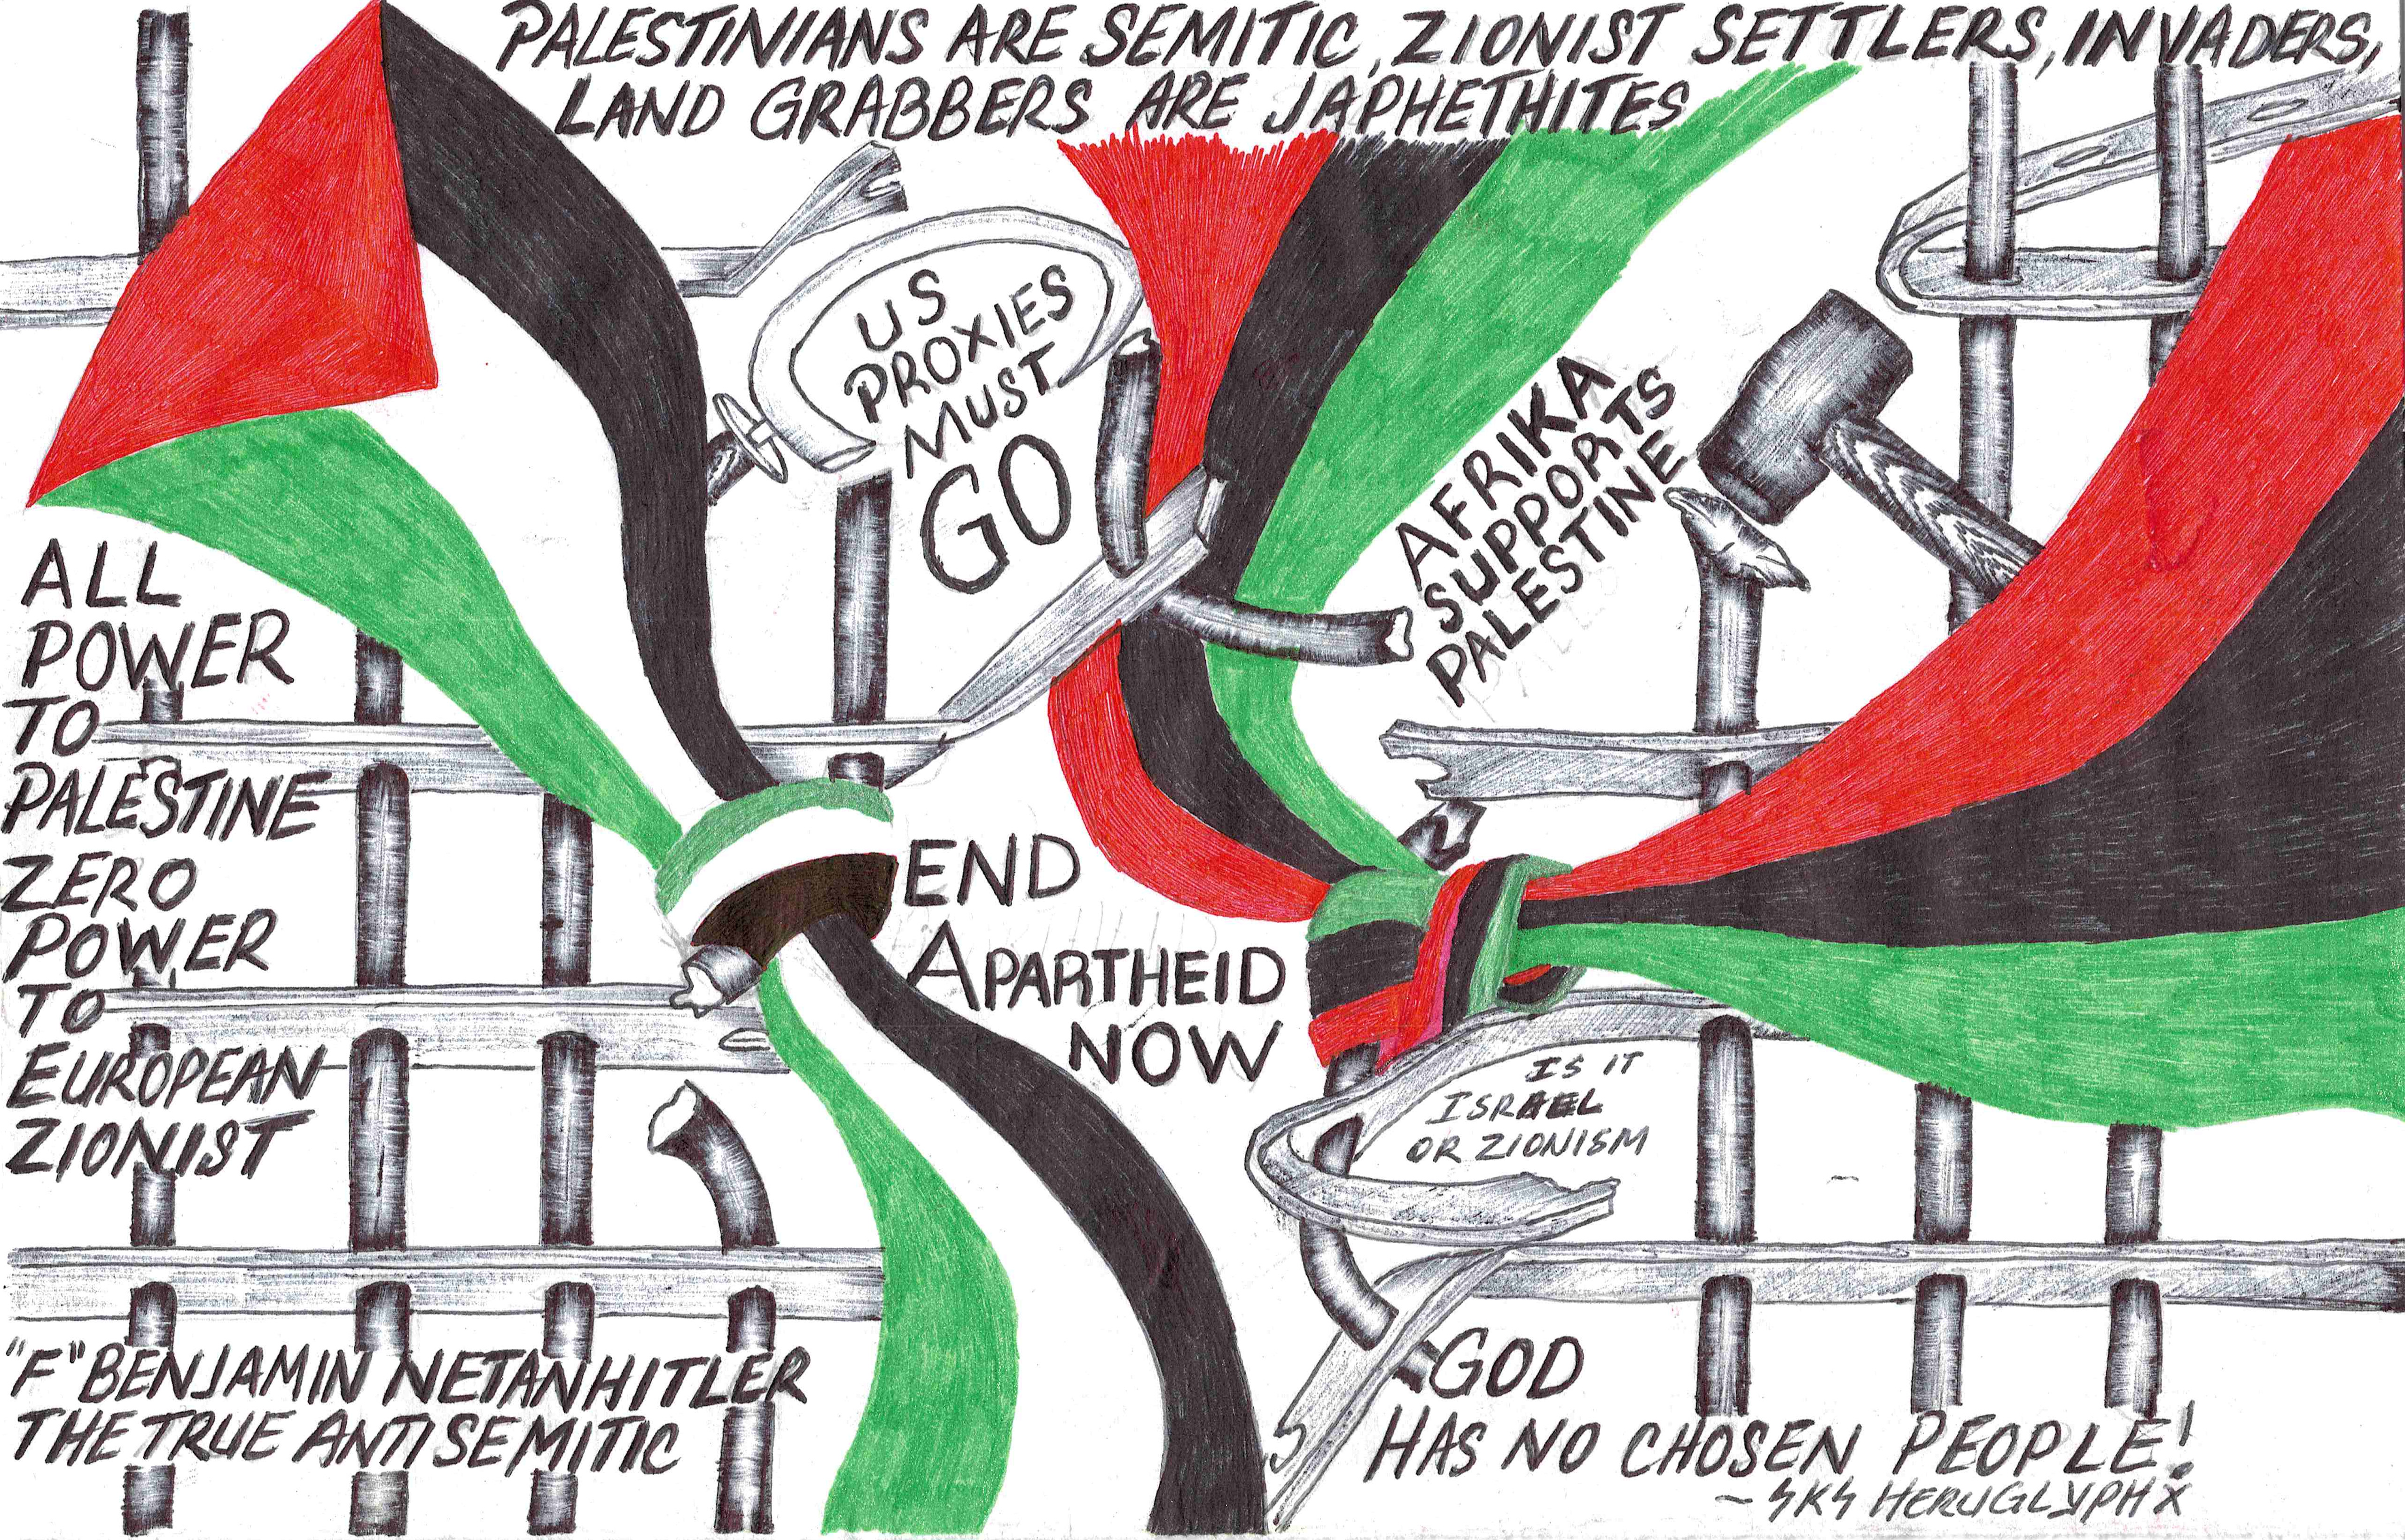 PALESTINIANS ARE SEMITIC, ZIONIST SETTLERS, INVADERS,
LAND GRABBERS ARE JAPHETHITES
US
PROXIES
MUST
GO
AFRIKA
SUPPORTS
PALESTINE
ALL
POWER
TO
PALESTINE
ZERO
POWER
TO
EUROPEAN
ZIONIST
END
APARTHEID
NOW
IS IT
ISRAEL
OR ZIONISM
"F" BENJAMIN NETANHITLER
THE TRUE ANTISEMITIC
GOD
HAS NO CHOSEN PEOPLE!
~ SKS HERUGLYPHX